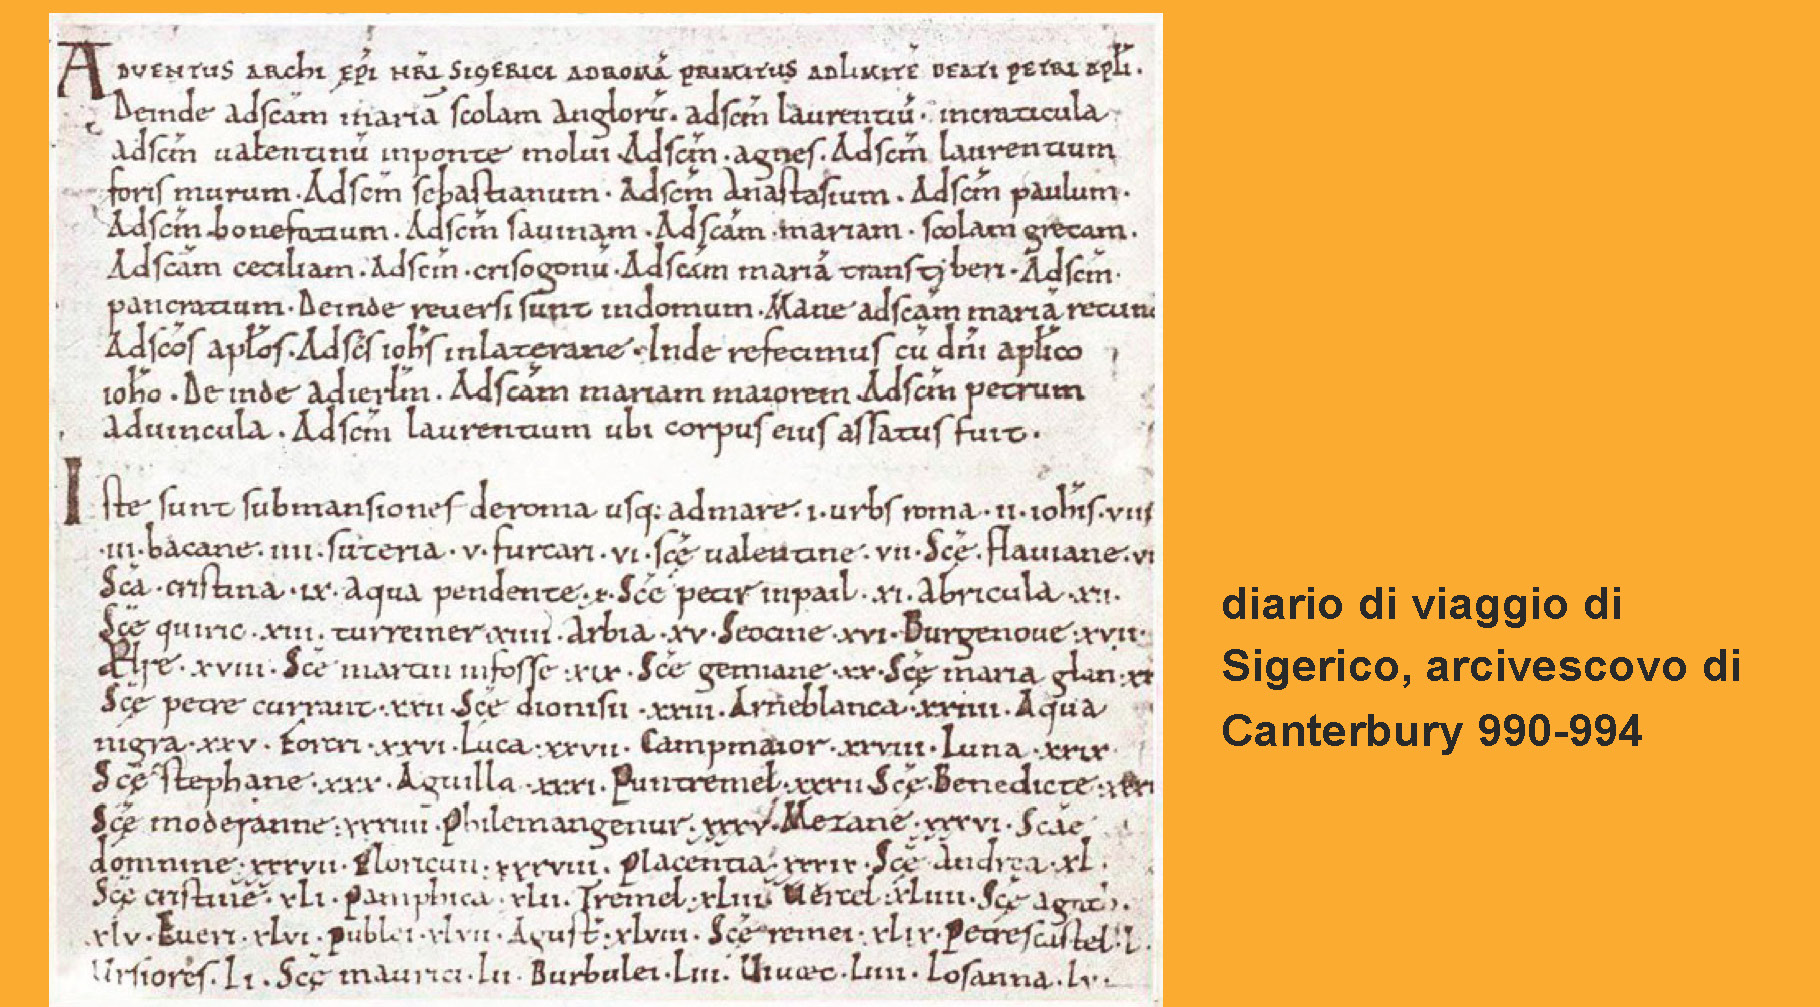 ADVENTUS ARCHI EPI NRI SIGERICI AD ROMĀ PRIMITUS AD LIMITĒ BEATI PETRI APLI.
Deinde adscam mariā scolam anglorū. adscm laurentiū. incraticula
adscm ualentinū inponte molui. Adscm. agnes. Adscm laurentium
foris murum. Adscm sebastianum. Adscm anastasium. Adscm paulum.
Adscm bonefatium. Adscm sauinam. Adscam mariam. scolam grecam.
Adscam ceciliam. Adscm. crisogonū. Adscam mariā transtyberi. Adscm.
pancratium. Deinde reuersi sunt indomum. Mane adscam mariā
Adscos aplos. Adscs iohs inlaterane. Inde refecimus cū dni aplico
ioho. Deinde adierlm. Adscam mariam maiorem. Adscm petrum
aduincula. Adscm laurentium ubi corpus eius assatus fuit.
Iste sunt submansiones deroma usq: admare. i. urbs roma. ii. iohis. viiii
.iii. bacane. iiii. suteria. v. furcari. vi. sce ualentine. vii. Sce. flauiane. vi
Sca. cristina. ix. Aqua pendente. x. Sce petir inpail. xi. Abricula. xii.
Sce quiric. xiii. turreiner. xiiii. Arbia. xv. Seocine. xvi. Burgenoue. xvii.
Ælse. xviii. Sce martin infosse. xix. Sce gemiane. xx. Sce maria glan. xx
Sce petre currant. xxii. Sce dionisii. xxiii. Arneblanca. xxiiii. Aqua
nigra. xxv. Forcri. xxvi. Luca. xxvii. Campmaior. xxviii. Luna. xxix.
Sce stephane. xxx. Aguilla. xxxi. Puntremel. xxxii. Sce. Benedicte.
Sce moderanne. xxxiiii. Philemangenur. xxxv. Mezane. xxxvi. Scae
domnine. xxxvii. Floricun. xxxviii. Placentia. xxxix. Sce Andrea. xl.
Sce cristine. xli. Pamphica. xlii. Tremel. xliii. Uercel. xliiii. Sce
xlv. Eueri. xlvi. publei. xlvii. Agust. xlviii. Sce remei. xlix. Petrescastel. l.
Ursiores. Li. Sce maurici. lii. Burbulei. Liii. Uiuaec. Liiii. Losanna. Lv.
diario di viaggio di
Sigerico, arcivescovo di
Canterbury 990-994